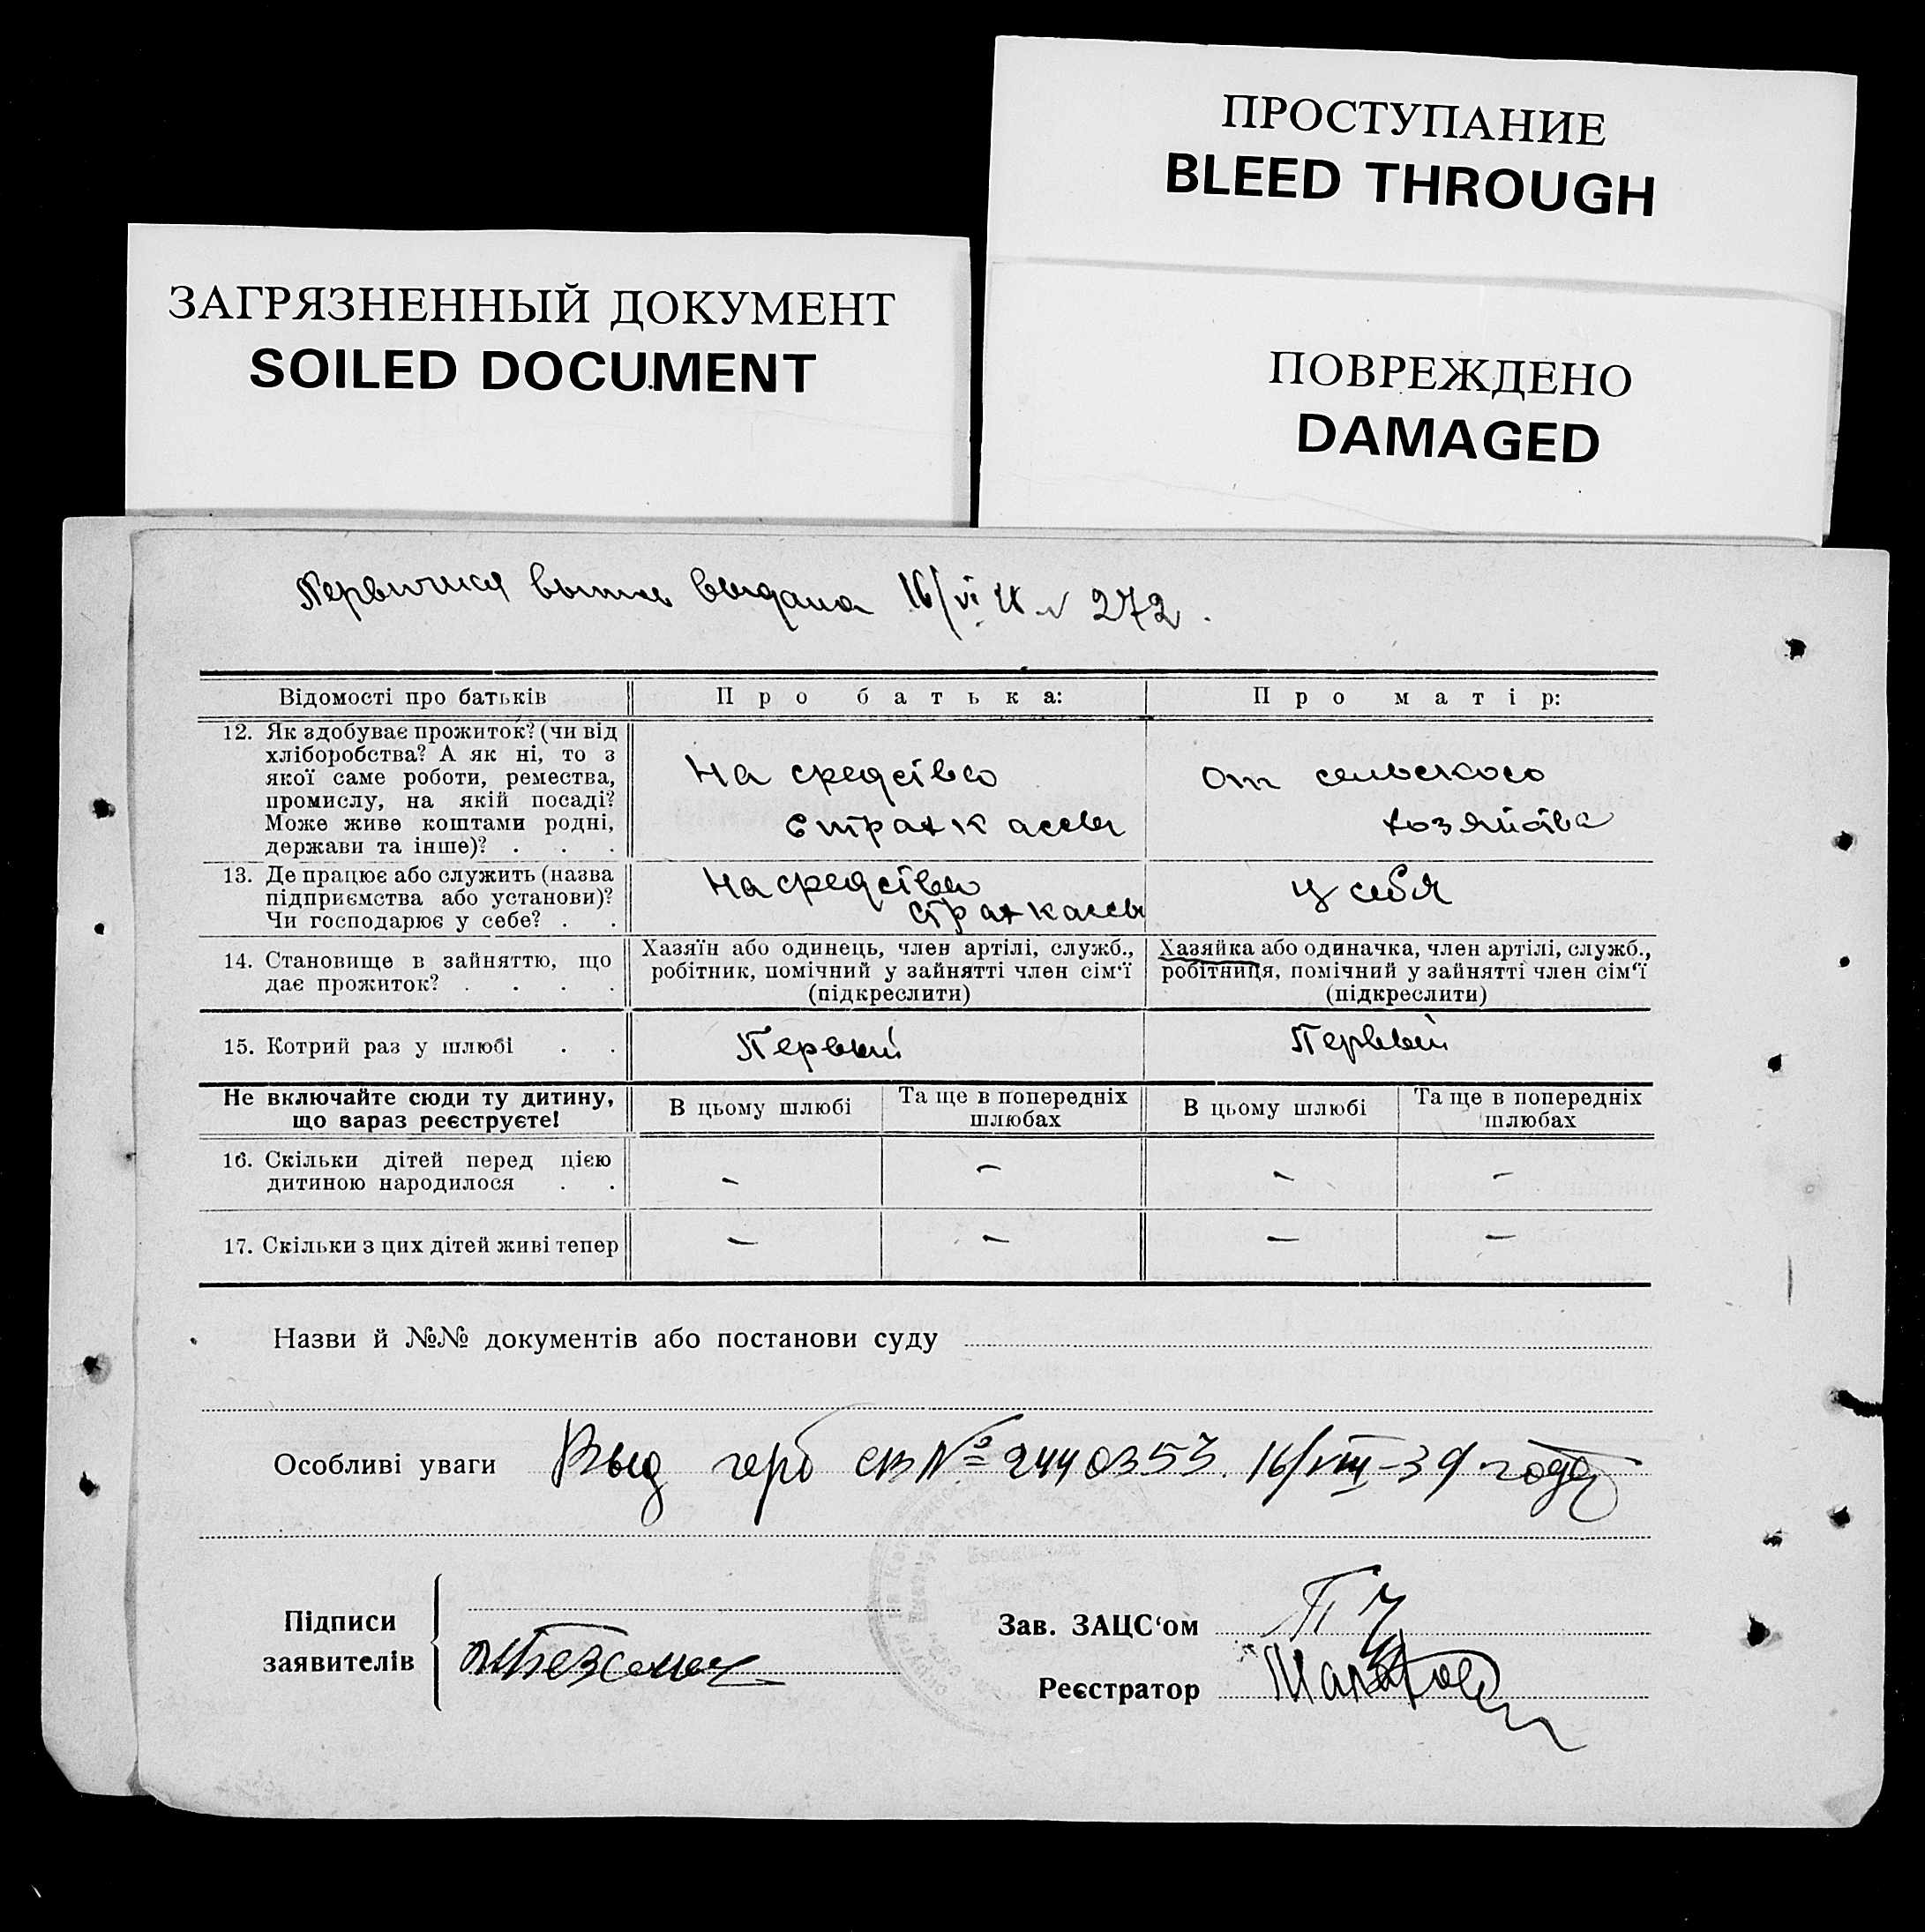 ПРОСТУПАНИЕ
BLEED THROUGH
ЗАГРЯЗНЕННЫЙ ДОКУМЕНТ
SOILED DOCUMENT
ПОВРЕЖДЕНО
DAMAGED
выдана 16/VI 272.
Відомості про батьків
Про батька:
Про матір:
12. Як здобуває прожиток? (чи від
хліборобства? А як ні, то з
якої саме роботи, ремества,
промислу, на якій посаді?
Може живе коштами родні,
держави та інше)? . . .
На средство
Страхкассы
От сельского
хозяйства
13. Де працює або служить (назва
підприємства або установи)?
Чи господарює у себе? . .
На средство
Страхкассы
у себя
14. Становище в зайняттю, що
дає прожиток? . . . .
Хазяїн або одинець, член артілі, служб.,
робітник, помічний у зайнятті член сім‘ї
(підкреслити)
Хазяйка або одиначка, член артілі, служб.,
робітниця, помічний у зайнятті член сім‘ї
(підкреслити)
15. Котрий раз у шлюбі . .
Первый
Первый
Не включайте сюди ту дитину,
що зараз реєструєте!
В цьому шлюбі
Та ще в попередніх
шлюбах
В цьому шлюбі
Та ще в попередніх
шлюбах
16. Скільки дітей перед цією
дитиною народилося . .
– – – –
17. Скільки з цих дітей живі тепер
– – – –
Назви й №№ документів або постанови суду
Особливі уваги Выд герб св № 2440353. 16/VIII-39 года
Підписи
заявителів
Зав. ЗАЦС‘ом
Реєстратор